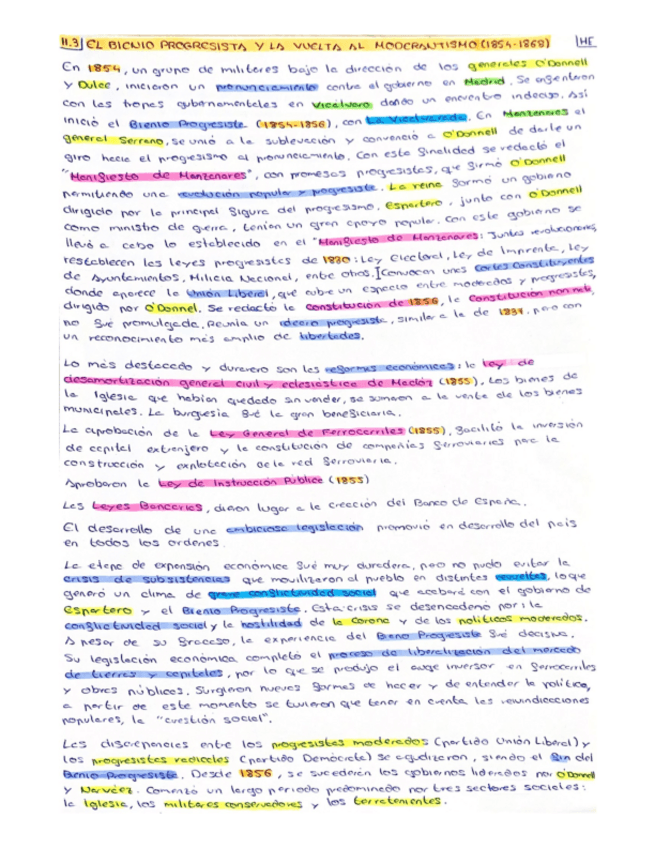 11.3 EL BIENIO PROGRESISTA Y LA VUELTA AL MODERANTISMO (1854-1868) HE
En 1854, un grupo de militares bajo la dirección de los generales O'Donnell
y Dulce, iniciaron un pronunciamiento contra el gobierno en Madrid. Se enfrentaron
con las tropas gubernamentales en Vicálvaro dando un encuentro indeciso. Así
inició el Bienio Progresista (1854-1856), con La Vicalvarada. En Manzanares el
general Serrano, se unió a la sublevación y convenció a O'Donnell de darle un
giro hacia el progresismo al pronunciamiento. Con esta finalidad se redactó el
"Manifiesto de Manzanares", con promesas progresistas, que firmó O'Donnell
permitiendo una revolución popular y progresista. La reina formó un gobierno
dirigido por la principal figura del progresismo, Espartero, junto con O'Donnell
como ministro de guerra, tenían un gran apoyo popular. Con este gobierno se
llevó a cabo lo establecido en el "Manifiesto de Manzanares: Juntas revolucionarias,
restablecen las leyes progresistas de 1820: Ley Electoral, Ley de Imprenta, Ley
de Ayuntamientos, Milicia Nacional, entre otros. Convocan unas Cortes Constituyentes
donde aparece la Unión Liberal, que cubre un espacio entre moderados y progresistas,
dirigido por O'Donnel. Se redactó la constitución de 1856, la Constitución non nata,
no fué promulgada. Reunía un ideario progresista, similar a la de 1837, pero con
un reconocimiento más amplio de libertades.
Lo más destacado y duradero son las reformas económicas: la Ley de
desamortización general civil y eclesiástica de Madóz (1855). Los bienes de
la Iglesia que habían quedado sin vender, se sumaon a la venta de los bienes
municipales. La burguesía fué la gran beneficiaria.
La aprobación de la Ley General de Ferrocarriles (1855), facilitó la inversión
de capital extranjero y la constitución de compañías ferroviarias para la
construcción y explotación de la red ferroviaria.
Aprobaron la Ley de Instrucción Pública (1855)
Las Leyes Bancarias, dieron lugar a la creación del Banco de España.
El desarrollo de una ambiciosa legislación promovió en desarrollo del país
en todos los ordenes.
La etapa de expansión económica fué muy duradera, pero no pudo evitar la
crisis de subsistencias que movilizaron al pueblo en distintas revueltas, lo que
generó un clima de grave conflictividad social que acabará con el gobierno de
Espartero y el Bienio Progresista. Esta crisis se desencadenó por: la
conflictividad social y la hostilidad de la Corona y de los políticos moderados.
A pesar de su fracaso, la experiencia del Bieno Progresista fué decisiva.
Su legislación económica completó el proceso de liberalización del mercado
de tierras y capitales, por lo que se produjo el auge inversor en ferrocarriles
y obras públicas. Surgieron nuevas formas de hacer y de entender la política,
a partir de este momento se tuvieron que tener en cuenta las reivindicaciones
populares, la "cuestión social".
Las discrepancias entre los progresistas moderados (partido Unión Liberal) y
los progresistas radicales (partido Demócrata) se agudizaron, siendo el fin del
Bienio Progresista. Desde 1856, se sucederán los gobiernos liderados por O'Donnell
y Narváez. Comenzó un largo periodo predominado por tres sectores sociales:
la Iglesia, los militares conservadores y los terratenientes.